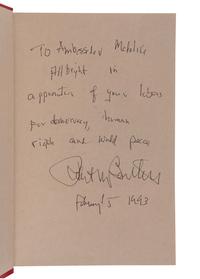 To Ambassador Madeleine
Albright in
appreciation of your labors
for democracy, human
rights and world peace
February 5 1993